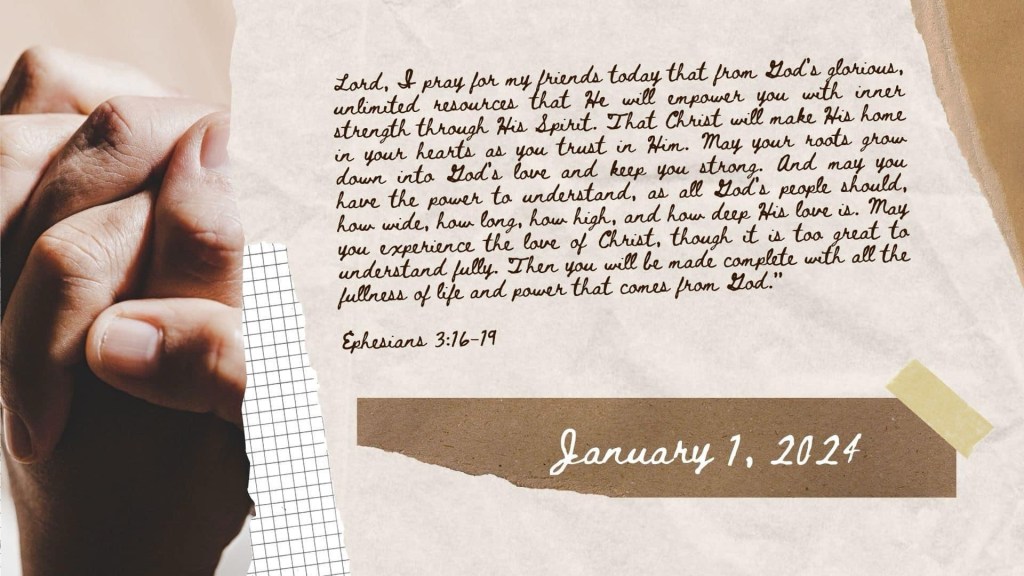 Lord, I pray for my friends today that from God's glorious,
unlimited resources that He will empower you with inner
strength through His Spirit. That Christ will make His home
in your hearts as you trust in Him. May your roots grow
down into God's love and keep you strong. And may you
have the power to understand, as all God's people should,
how wide, how long, how high, and how deep His love is. May
you experience the love of Christ, though it is too great to
understand fully. Then you will be made complete with all the
fullness of life and power that comes from God."
Ephesians 3:16-19
January 1, 2024